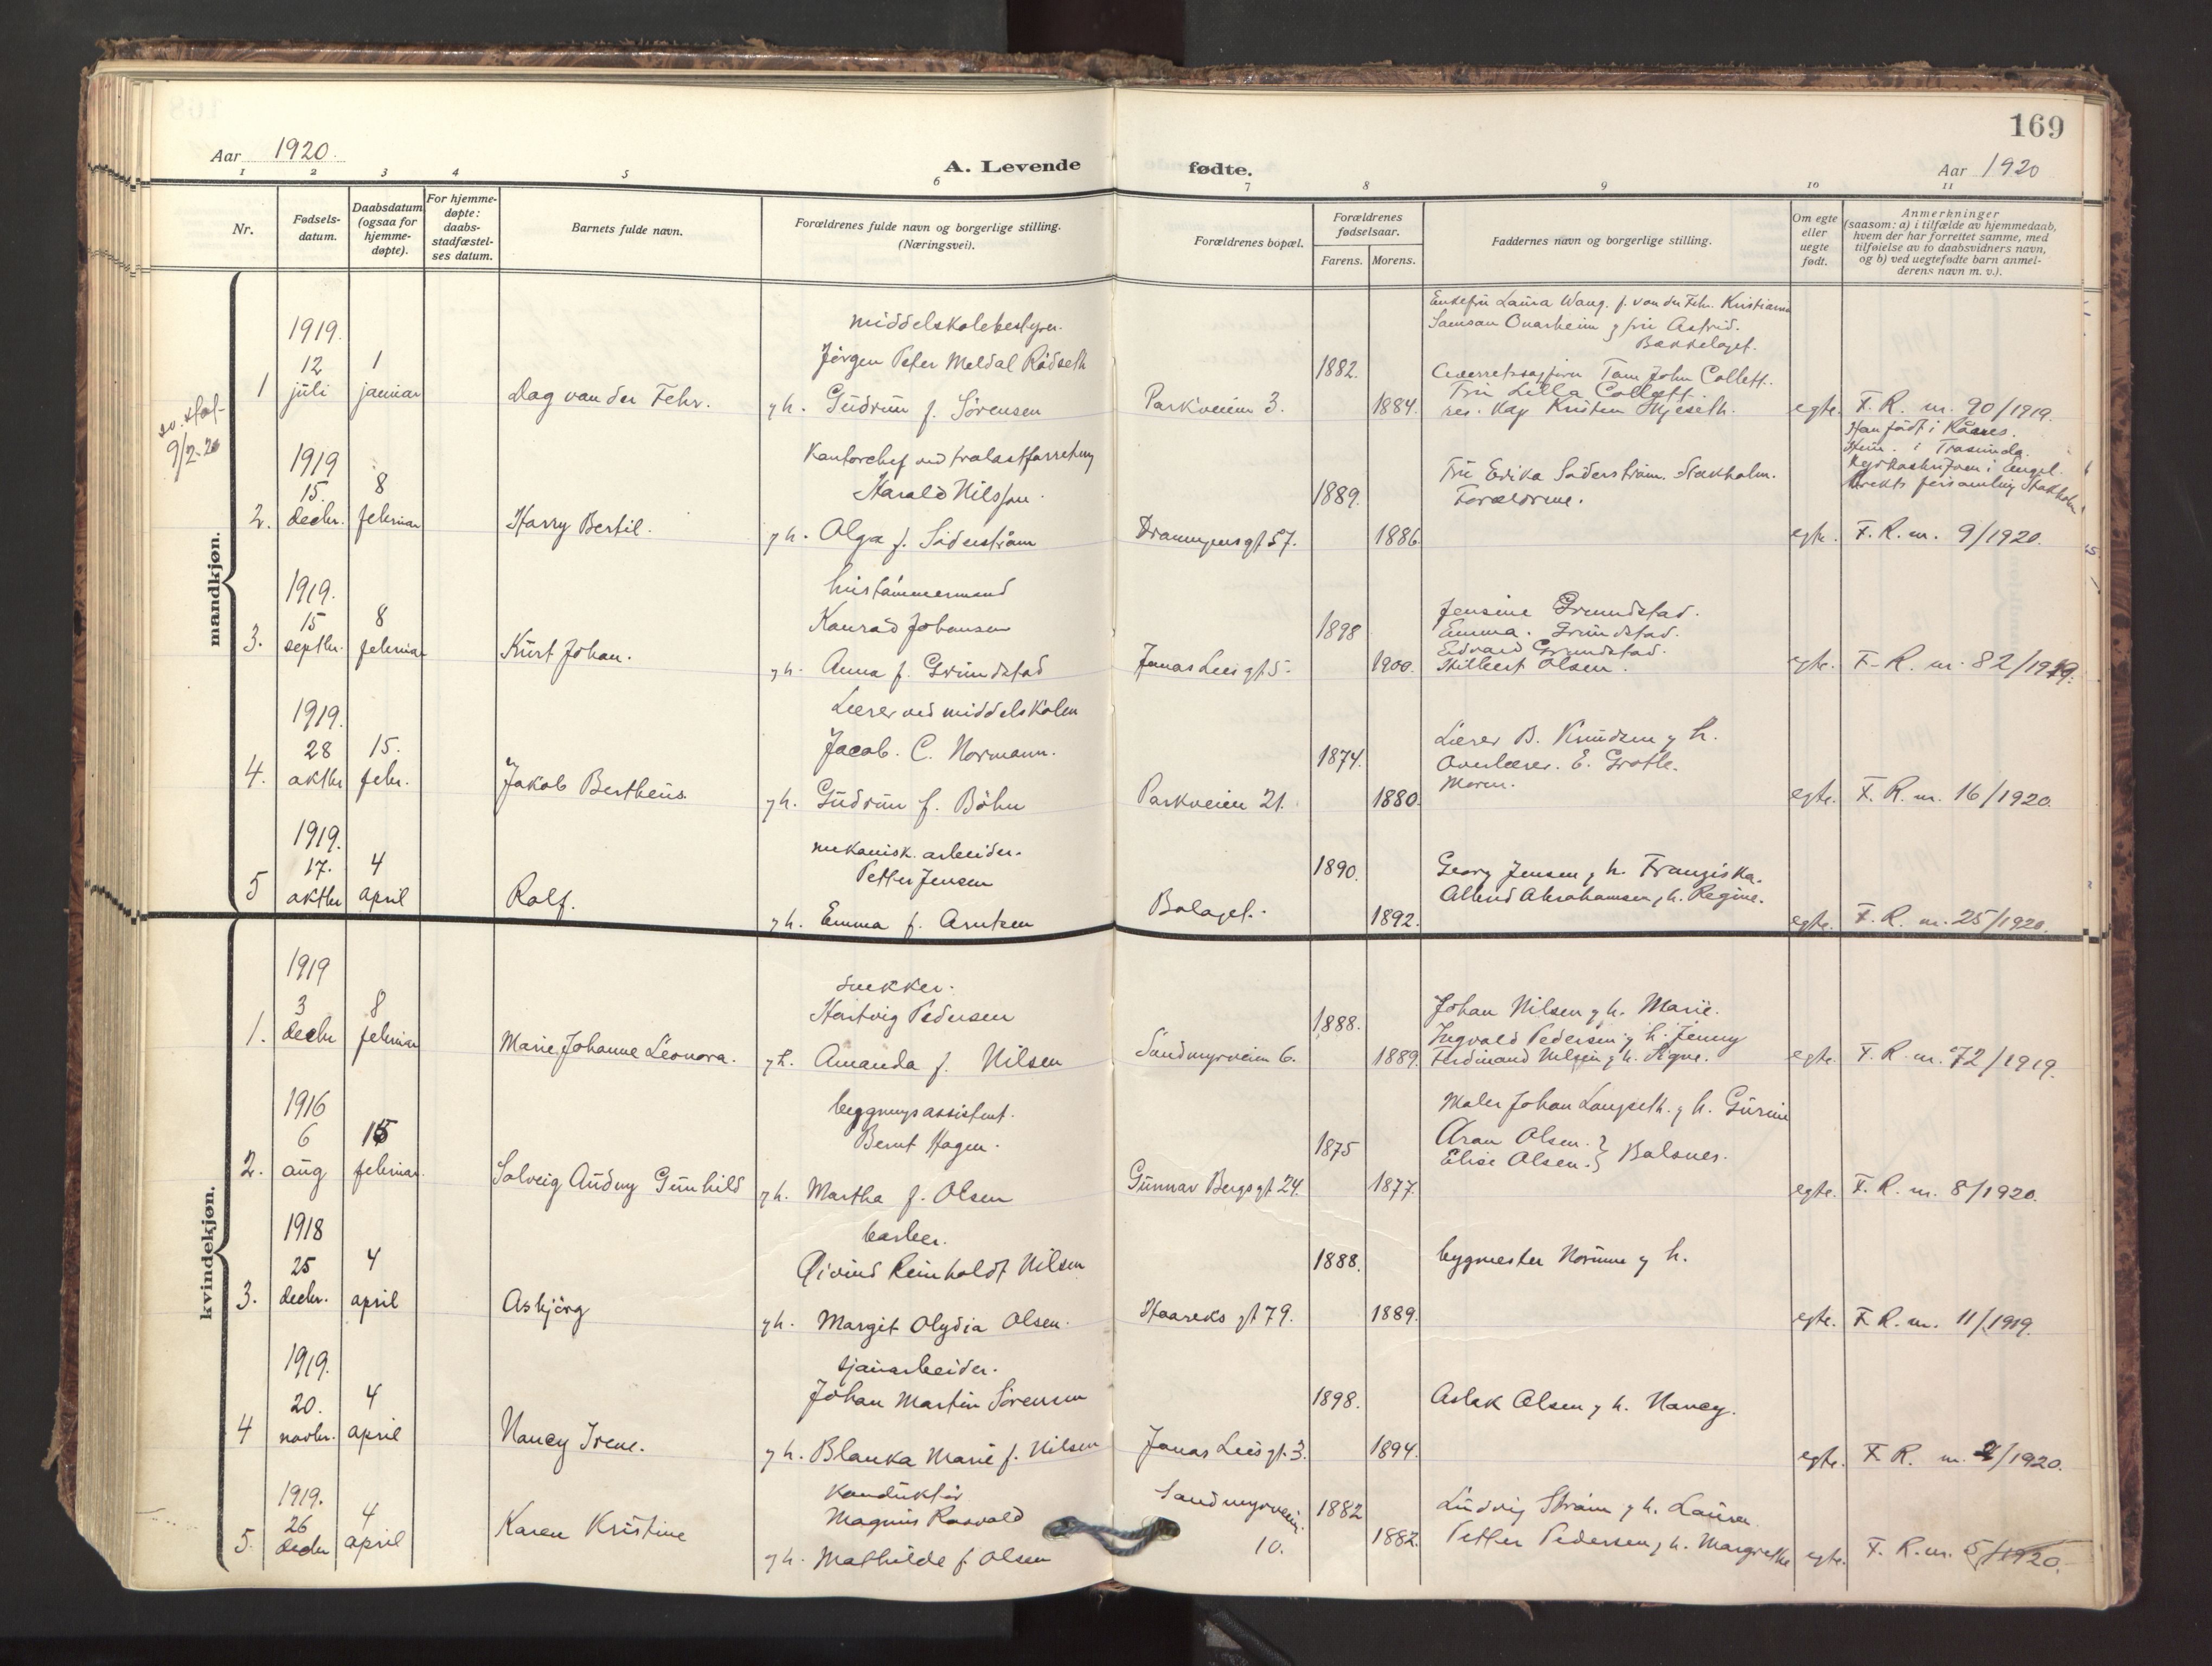 169
Aar 1920.
A. Levende fødte.
Aar 1920
1 2 3 4 5 6 7 8 9 10 11
Nr.
Fødsels-
datum.
Daabsdatum
(ogsaa for
hjemme-
døpte).
For hjemme-
døpte:
daabs-
stadfæstel-
ses datum.
Barnets fulde navn.
Forældrenes fulde navn og borgerlige stilling.
(Næringsvei).
Forældrenes bopæl.
Forældrenes
fødselsaar.
Farens. Morens.
Faddernes navn og borgerlige stilling.
Om egte
eller
uegte
født.
Anmerkninger
(saasom: a) i tilfælde av hjemmedaab,
hvem der har forrettet samme, med
tilføielse av to daabsvidners navn,
og b) ved uegtefødte barn anmel-
derens navn m. v.).
mandkjøn.
1
1919.
12
juli
1
januar
Dag van der Fehr.
middelskolebestyrer.
Jørgen Peter Meldal Rødseth
g h. Gudrun f. Sörensen
Parkveien 3.
1882.
1884.
Enkefru Laura Wang. f. van der Fehr. Kristiania
Samson Onarheim g fru Astrid.
Bækkelaget.
Overretssagfører Tam John Collett.
Fru Lilla Collett.
res. kap Kristen
egte.
F. R. nr. 90/1919.
9/2-20
2.
1919
15.
decbr.
8
februar
Harry Bertil.
Kontorchef ved trælastforretning
Harald Nilsson.
g h. Olga f. Söderström
Drammensgt 57.
1889.
1886
Fru Erika Söderström. Stockholm.
Forældrene.
egte.
Han født i
Hun. i
F. R. nr. 9/1920.
3.
1919.
15
septbr.
8
februar
Kurt Johan.
hustømmermand
Konrad Johansen
g h. Anna f. Grundstad
Jonas Lies gt 5.
1898
1900.
Jensine Grundstad.
Emma. Grundstad.
Edvard Grundstad.
Olsen.
egte.
F. R. nr. 82/1919.
4.
1919.
28
oktbr
15.
febr.
Jakob Bertheus.
Lærer ved middelskolen
Jacob. C. Normann.
g h. Gudrun f. Böhn
Parkveien 21.
1874.
1880.
Lærer B. Knudsen g h.
Overlærer. E. Grotle.
Moren.
egte.
F. R. nr. 16/1920.
5
1919.
17.
oktbr
4
april
Rolf.
mekanisk. arbeider.
Petter Jensen
g h. Emma f. Arntzen
Bolaget.
1890.
1892.
Georg Jensen g h. Franziska.
Abrahamsen g h. Regine.
egte.
F. R. nr. 25/1920.
kvindekjøn.
1.
1919
3
decbr
8
februar
Marie Johanne Leonora.
snekker.
Hartvig Pedersen
g h. Amanda f. Nilsen
Sandmyrveien 6.
1888.
1889.
Johan Nilsen g h. Marie.
Ingvald Pedersen g h. Jenny
Ferdinand Nilsen g h. Signe.
egte.
F. R. nr. 72/1919.
2.
1916
6
aug
15
februar.
Solveig Audny Gunhild
bygningsassistent.
Bernt Hagen.
g h. Martha f. Olsen
Gunnar Bergs gt 24.
1875
1877.
Maler Johan Langseth. g h. Gurine
Aron Olsen. } Balsnes.
Elise Olsen.
egte.
F. R. nr. 8/1920.
3.
1918
25
decbr.
4
april
Asbjörg
barber.
Øivind Reinholdt Nilsen
g h. Margit Olydia Olsen.
Haareks gt 79.
1888.
1889.
bygmester Normann g h.
egte.
F. R. nr. 11/1919.
4
1919.
20.
novbr.
4
april
Nancy Irene.
sjauarbeider.
Johan Martin Sörensen
g h. Blanka Marie f. Nilsen
Jonas Lies gt. 3.
1898.
1894.
Aslak Olsen g h. Nancy.
egte.
F. R. nr. 2/1920.
5.
1919.
26
decbr
4
april
Karen Kristine
konduktör
Magnus Rosvold
g h. Mathilde f Olsen
Sandmyrveien.
10.
1882
1882.
Ludvig Ström g h. Laura
Petter Pedersen g h. Margrethe
egte.
F. R. nr. 5/1920.